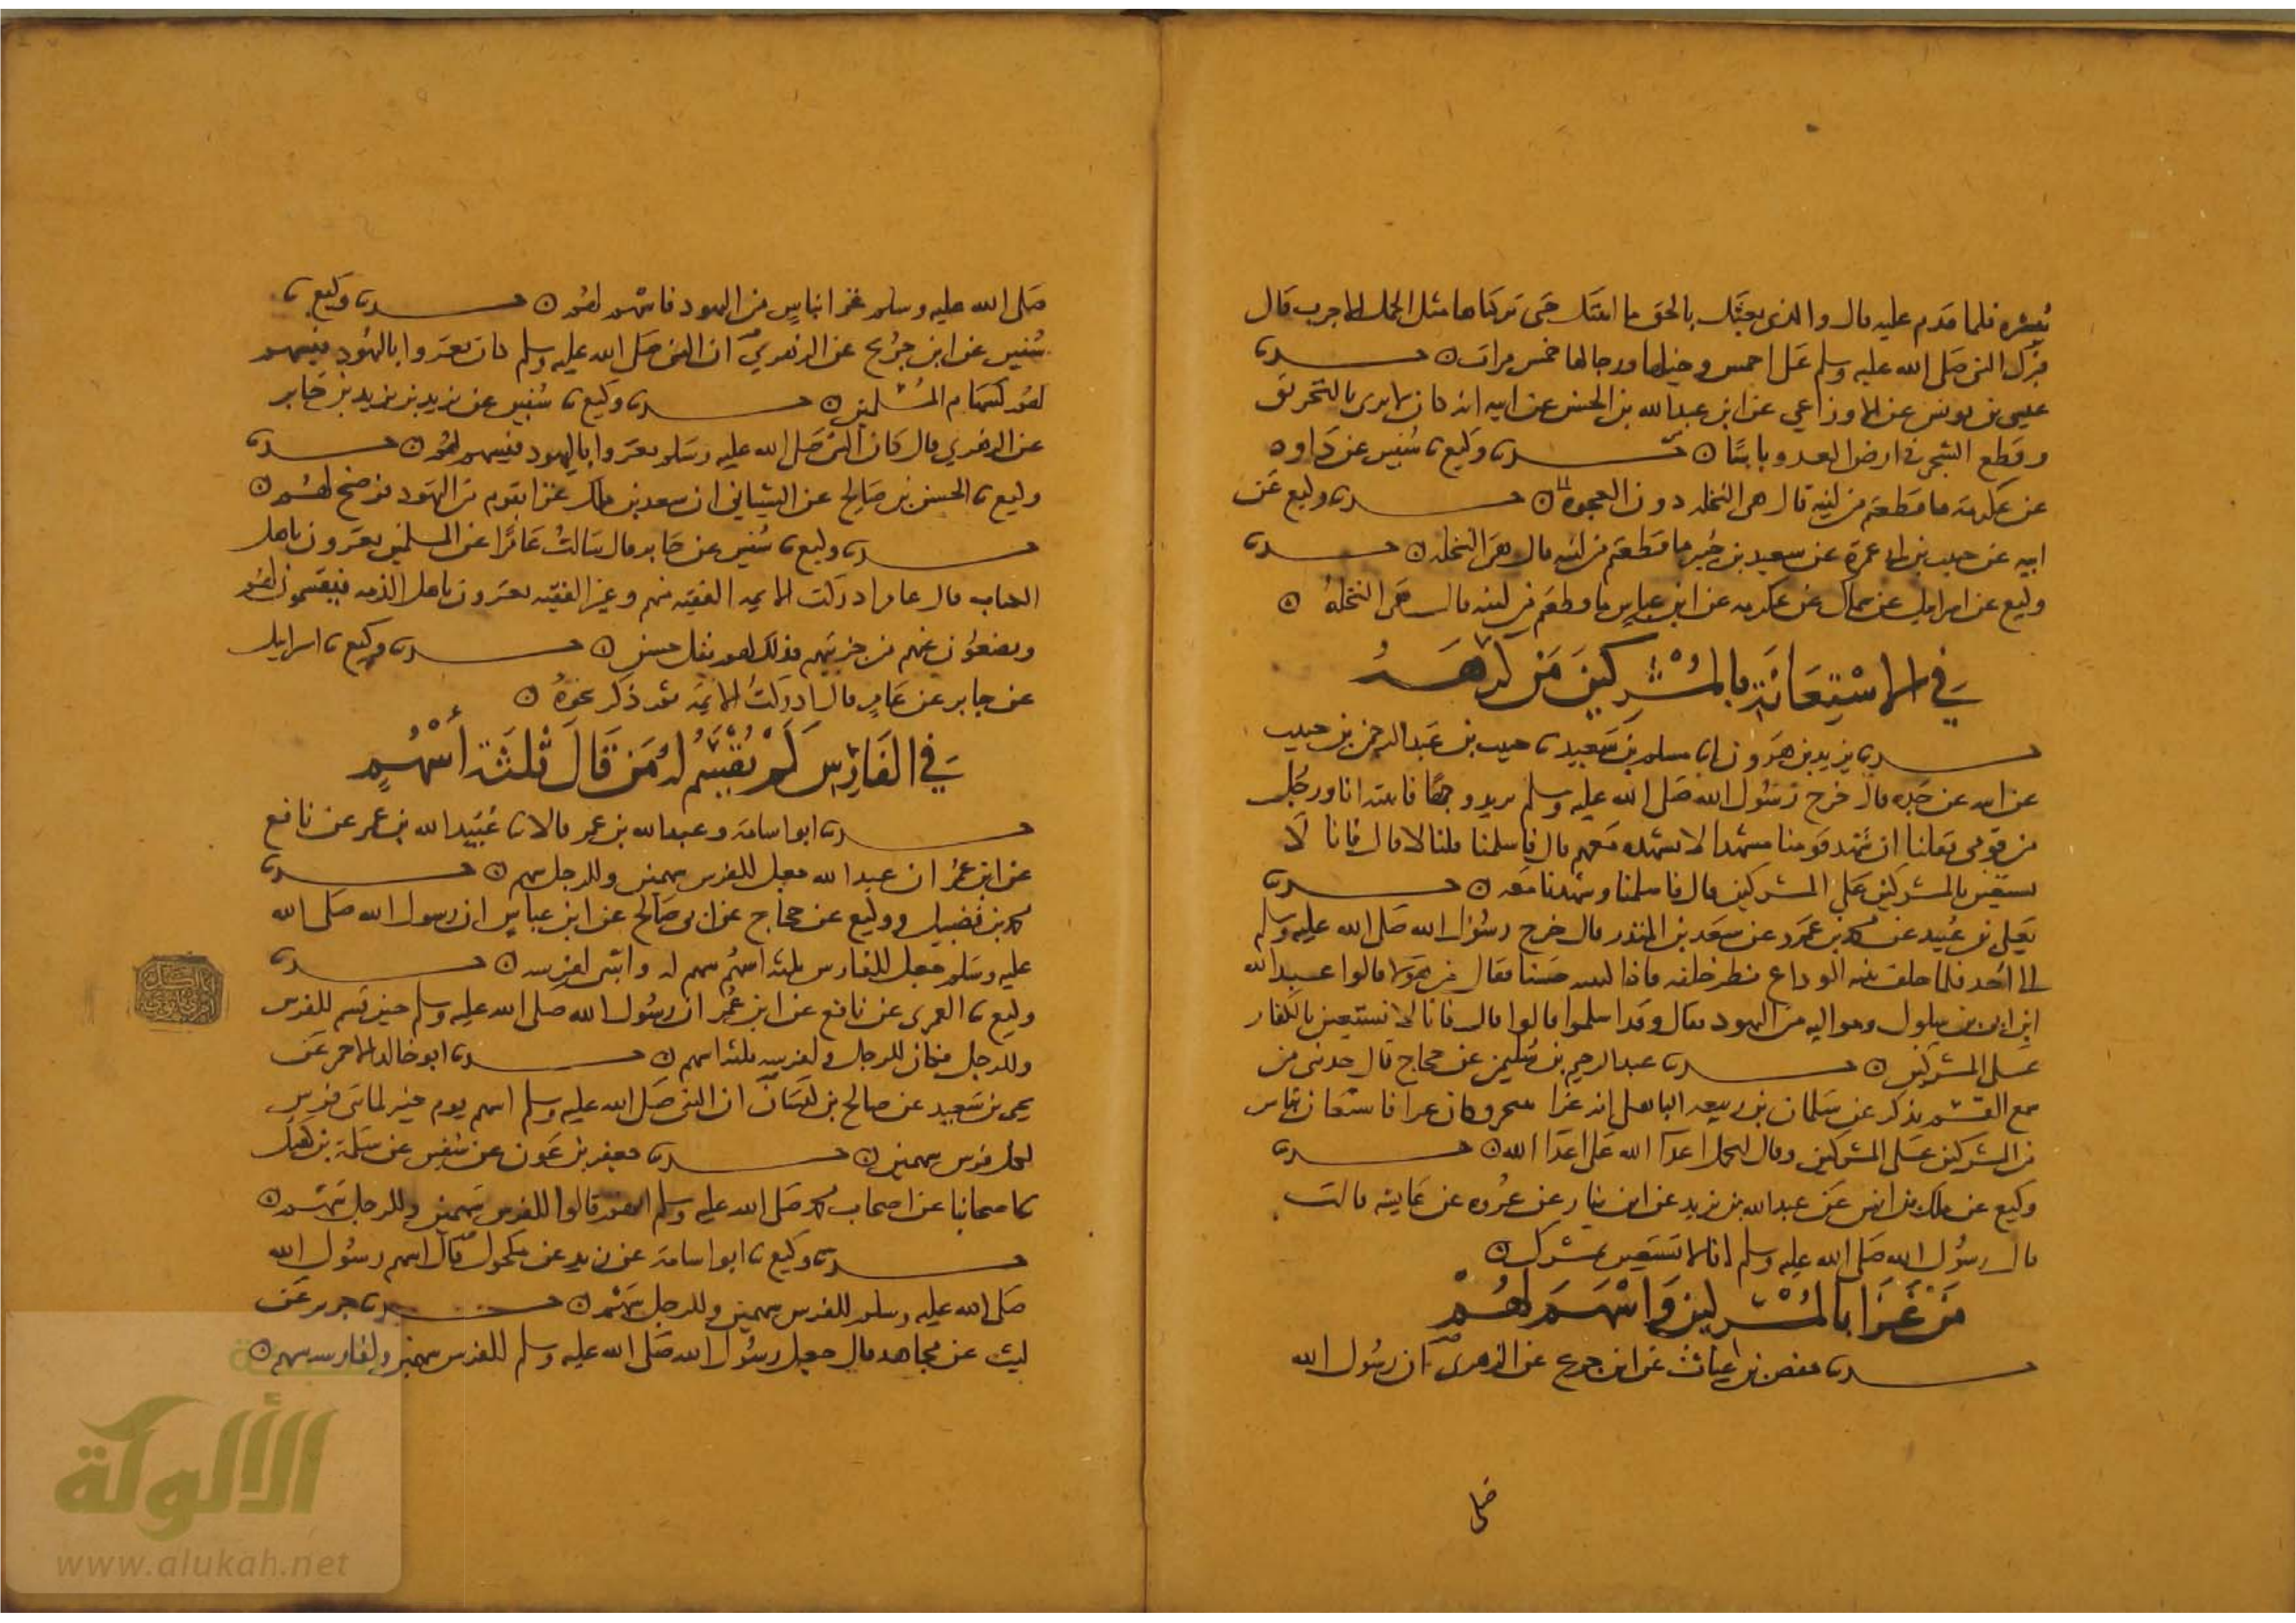 يبشره فلما قدم عليه قال والذي بعثك بالحق ما اتيتك حتى تركناها مثل الجمل الاجرب قال
فبرك النبي صلى الله عليه وسلم على احمس وخيلها ورجالها خمس مرات ه حدثنا
عيسى بن يونس عن الاوزاعي عن ابن عبدالله بن الحسن عن ابيه انه كان لا يرى بالتحريق
وقطع الشجر في ارض العدو باسا ه حدثنا وكيع نا سفين عن داود
عن عكرمة ما قطعتم من لينة قال هي النخلة دون العجوة ه حدثنا وكيع عن
ابيه عن حبيب بن ابي عمرة عن سعيد بن جبير ما قطعتم من لينة قال هي النخلة ه حدثنا
وكيع عن اسرايل عن سماك عن عكرمة عن ابن عباس ما قطعتم من لينة قال هي النخلة ه
في الاستعانة بالمشركين من كرهه
حدثنا يزيد بن هرون انا مسلم بن سعيد نا حبيب بن عبد الرحمن بن حبيب
عن ابيه عن جده قال خرج رسول الله صلى الله عليه وسلم يريد وجها فاتيته انا ورجل
من قومي فقلنا انا نشهد قومنا مشهدا لا نشهده معهم قال فاسلمتما قلنا لا قال فانا لا
نستعين بالمشركين على المشركين قال فاسلمنا وشهدنا معه ه حدثنا
يعلى بن عبيد عن محمد بن عمرو عن سعد بن المنذر قال خرج رسول الله صلى الله عليه وسلم
الى احد فلما خلف ثنية الوداع نظر خلفه فاذا كتيبة خشنا فقال من هولا قالوا عبدالله
ابن ابي بن سلول ومواليه من اليهود فقال وقد اسلموا قالوا قال فانا لا نستعين بالكفار
على المشركين ه حدثنا عبد الرحيم بن سليمن عن حجاج قال حدثني من
سمع القسم يذكر عن سلمان بن ربيعة الباهلي انه غزا بلنجر وكان عرا فاستعان بناس
من المشركين على المشركين وقال ليحمل اعدا الله على اعدا الله ه حدثنا
وكيع عن ملك بن انس عن عبدالله بن يزيد عن ابن نيار عن عروة عن عايشة قالت
قال رسول الله صلى الله عليه وسلم انا لا نستعين بمشرك ه
من غزا بالمشركين واسهم لهم
حدثنا حفص بن غياث عن ابن جريج عن الزهري ان رسول الله
صلى
صلى الله عليه وسلم غزا بناس من اليهود فاسهم لهم ه حدثنا وكيع نا
سفين عن ابن جريج عن الزهري ان النبي صلى الله عليه وسلم كان يغزوا باليهود فيسهم
لهم كسهام المسلمين ه حدثنا وكيع نا سفين عن يزيد بن يزيد بن جابر
عن الزهري قال كان النبي صلى الله عليه وسلم يغزوا باليهود فيسهم لهم ه حدثنا
وكيع نا الحسن بن صالح عن الشيباني ان سعد بن ملك غزا بقوم من اليهود فرضخ لهم ه
حدثنا وكيع نا سفين عن جابر قال سالت عامرا عن المسلمين يغزون باهل
الكتاب قال عامر ادركت الايمة الفقيه منهم وغير الفقيه يغزون باهل الذمة فيقسمون لهم
ويضعون عنهم من جزيتهم فذلك لهم نفل حسن ه حدثنا وكيع نا اسرايل
عن جابر عن عامر قال ادركت الايمة ثم ذكر نحوه ه
في الفارس كم يقسم له من قال ثلثة اسهم
حدثنا ابو اسامة وعبدالله بن نمير قالا نا عبيد الله بن عمر عن نافع
عن ابن عمر ان عبد الله جعل للفرس سهمين وللرجل سهم ه حدثنا
محمد بن فضيل ووكيع عن حجاج عن ابي صالح عن ابن عباس ان رسول الله صلى الله
عليه وسلم جعل للفارس ثلثة اسهم سهم له واثنين لفرسه ه حدثنا
وكيع نا العمري عن نافع عن ابن عمر ان رسول الله صلى الله عليه وسلم حين قسم للفرس
وللرجل فكان للرجل ولفرسه ثلثة اسهم ه حدثنا ابو خالد الاحمر عن
يحيى بن سعيد عن صالح بن كيسان ان النبي صلى الله عليه وسلم اسهم يوم خيبر لمايتي فرس
لكل فرس سهمين ه حدثنا جعفر بن عون عن سفين عن سلمة بن كهيل
نا اصحابنا عن اصحاب محمد صلى الله عليه وسلم انهم قالوا للفرس سهمين وللرجل سهم ه
حدثنا وكيع نا ابو اسامة عن يزيد عن مكحول قال اسهم رسول الله
صلى الله عليه وسلم للفرس سهمين وللرجل سهم ه حدثنا جرير عن
ليث عن مجاهد قال جعل رسول الله صلى الله عليه وسلم للفرس سهمين ولفارسه سهم ه
شبكة
الألوكة
www.alukah.net